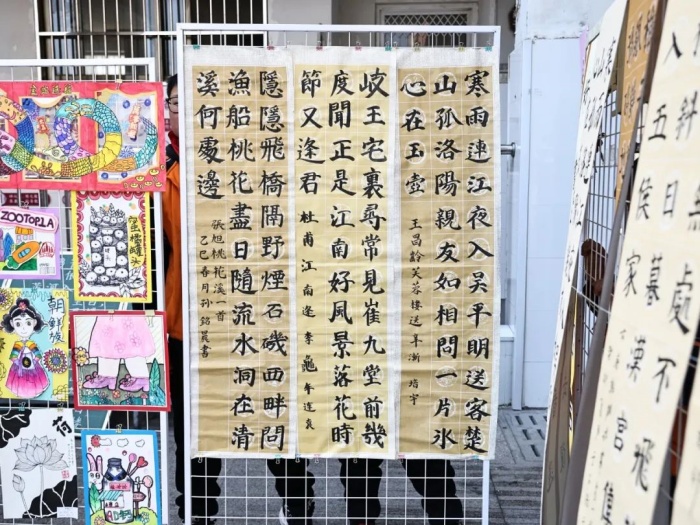 寒雨連江夜入吴平明送客楚
山孤洛陽親友如相問一片氷
心在玉壺
王昌龄芙蓉楼送辛渐 培宇
岐王宅裏尋常見崔九堂前幾
度聞正是江南好風景落花時
節又逢君
杜甫江南逢李龜年
隱隱飛橋隔野煙石磯西畔問
漁船桃花盡日隨流水洞在清
溪何處邊
張旭桃花溪一首
乙巳春月孙銘晨書
處不飛
日暮
五侯家
ZOOTOPIA
朝鲜族
荷